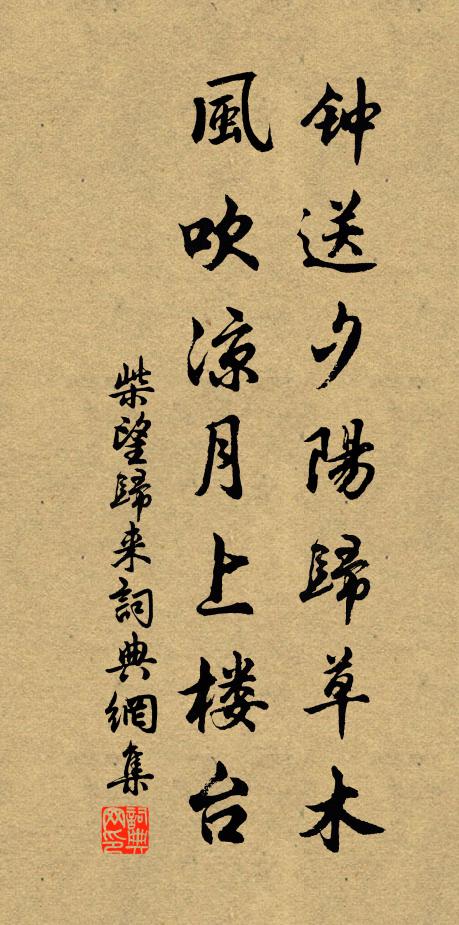 钟送夕陽歸草木
風吹凉月上楼台
柴望歸来詞典網集
詞典网印